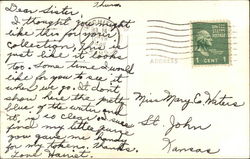 Thurs.
Dear Sister,
I thought you might
like this for your
collection. This is
just like it looks
too. Some time I would
like for you to see it
when we go. It don't
show here the pretty
blue of the water and
it is so clear
find my little
you gave me
for my token. Thanks.
Love Harriet.
ADDRESS
1 CENT 1
Miss Mary C. Waters
St. John
Kansas